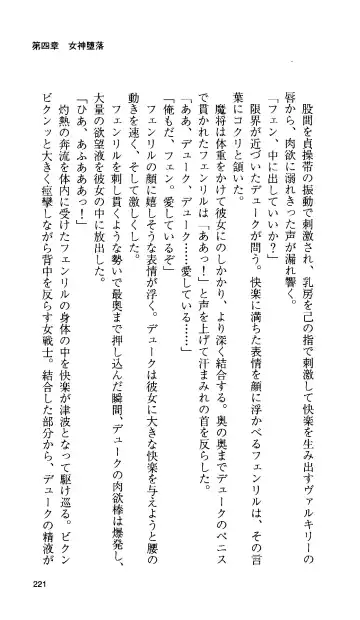 第四章　女神堕落
股間を貞操帯の振動で刺激され、乳房を己の指で刺激して快楽を生み出すヴァルキリーの
唇から、肉欲に溺れきった声が漏れ響く。
「フェン、中に出していいか？」
限界が近づいたデュークが問う。快楽に満ちた表情を顔に浮かべるフェンリルは、その言
葉にコクリと頷いた。
魔将は体重をかけて彼女にのしかかり、より深く結合する。奥の奥までデュークのペニス
で貫かれたフェンリルは「ああっ！」と声を上げて汗まみれの首を反らした。
「ああ、デューク、デューク……愛している……」
「俺もだ、フェン。愛しているぞ」
フェンリルの顔に嬉しそうな表情が浮く。デュークは彼女に大きな快楽を与えようと腰の
動きを速く、そして激しくした。
フェンリルを刺し貫くような勢いで最奥まで押し込んだ瞬間、デュークの肉欲棒は爆発し、
大量の欲望液を彼女の中に放出した。
「ひあ、あふああああっ！」
灼熱の奔流を体内に受けたフェンリルの身体の中を快楽が津波となって駆け巡る。ビクン
ビクンッと大きく痙攣しながら背中を反らす女戦士。結合した部分から、デュークの精液が
221